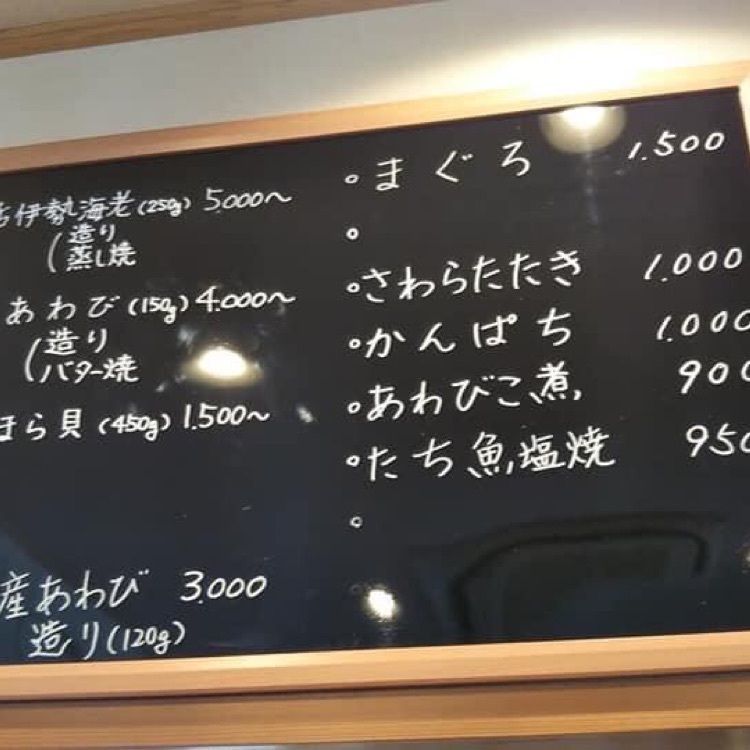 伊勢海老(250g) 5.000～
(造り
蒸し焼
あわび(150g) 4.000～
(造り
バター焼
ほら貝(450g) 1.500～
産あわび 3.000
造り(120g)
。まぐろ 1.500
。
。さわらたたき 1.000
。かんぱち 1.000
。あわびこ煮 900
。たち魚塩焼 950
。